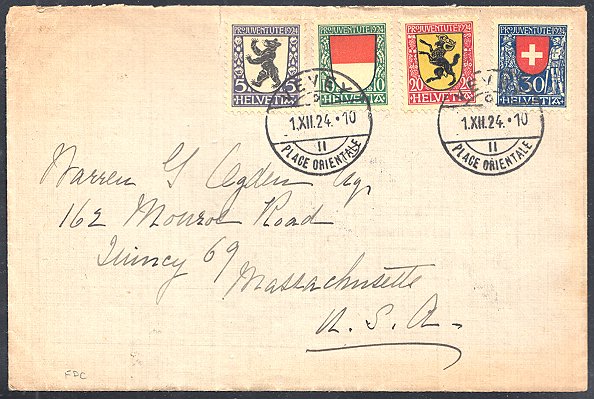 PRO JUVENTUTE 1924
5 5
HELVETIA
PRO JUVENTUTE 1924
10 10
HELVETIA
PRO JUVENTUTE 1924
20 20
HELVETIA
PRO JUVENTUTE 1924
30
HELVETIA
VEVEY
1.XII.24.•10
II
PLACE ORIENTALE
VEVEY
1.XII.24.•10
II
PLACE ORIENTALE
Warren G Ogden
162 Monroe Road
Quincy 69
Massachusetts
U. S. A.
FDC